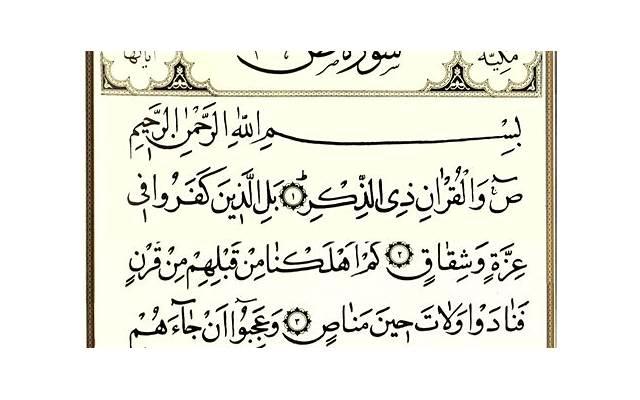 مكية سورة ص آياتها
بِسْمِ اللّٰهِ الرَّحْمٰنِ الرَّح۪يمِ
صٓ وَالْقُرْاٰنِ ذِي الذِّكْرِۜ ﴿١﴾ بَلِ الَّذ۪ينَ كَفَرُوا ف۪ي
عِزَّةٍ وَشِقَاقٍ ﴿٢﴾ كَمْ اَهْلَكْنَا مِنْ قَبْلِهِمْ مِنْ قَرْنٍ
فَنَادَوْا وَلَاتَ ح۪ينَ مَنَاصٍ ﴿٣﴾ وَعَجِبُٓوا اَنْ جَٓاءَهُمْ